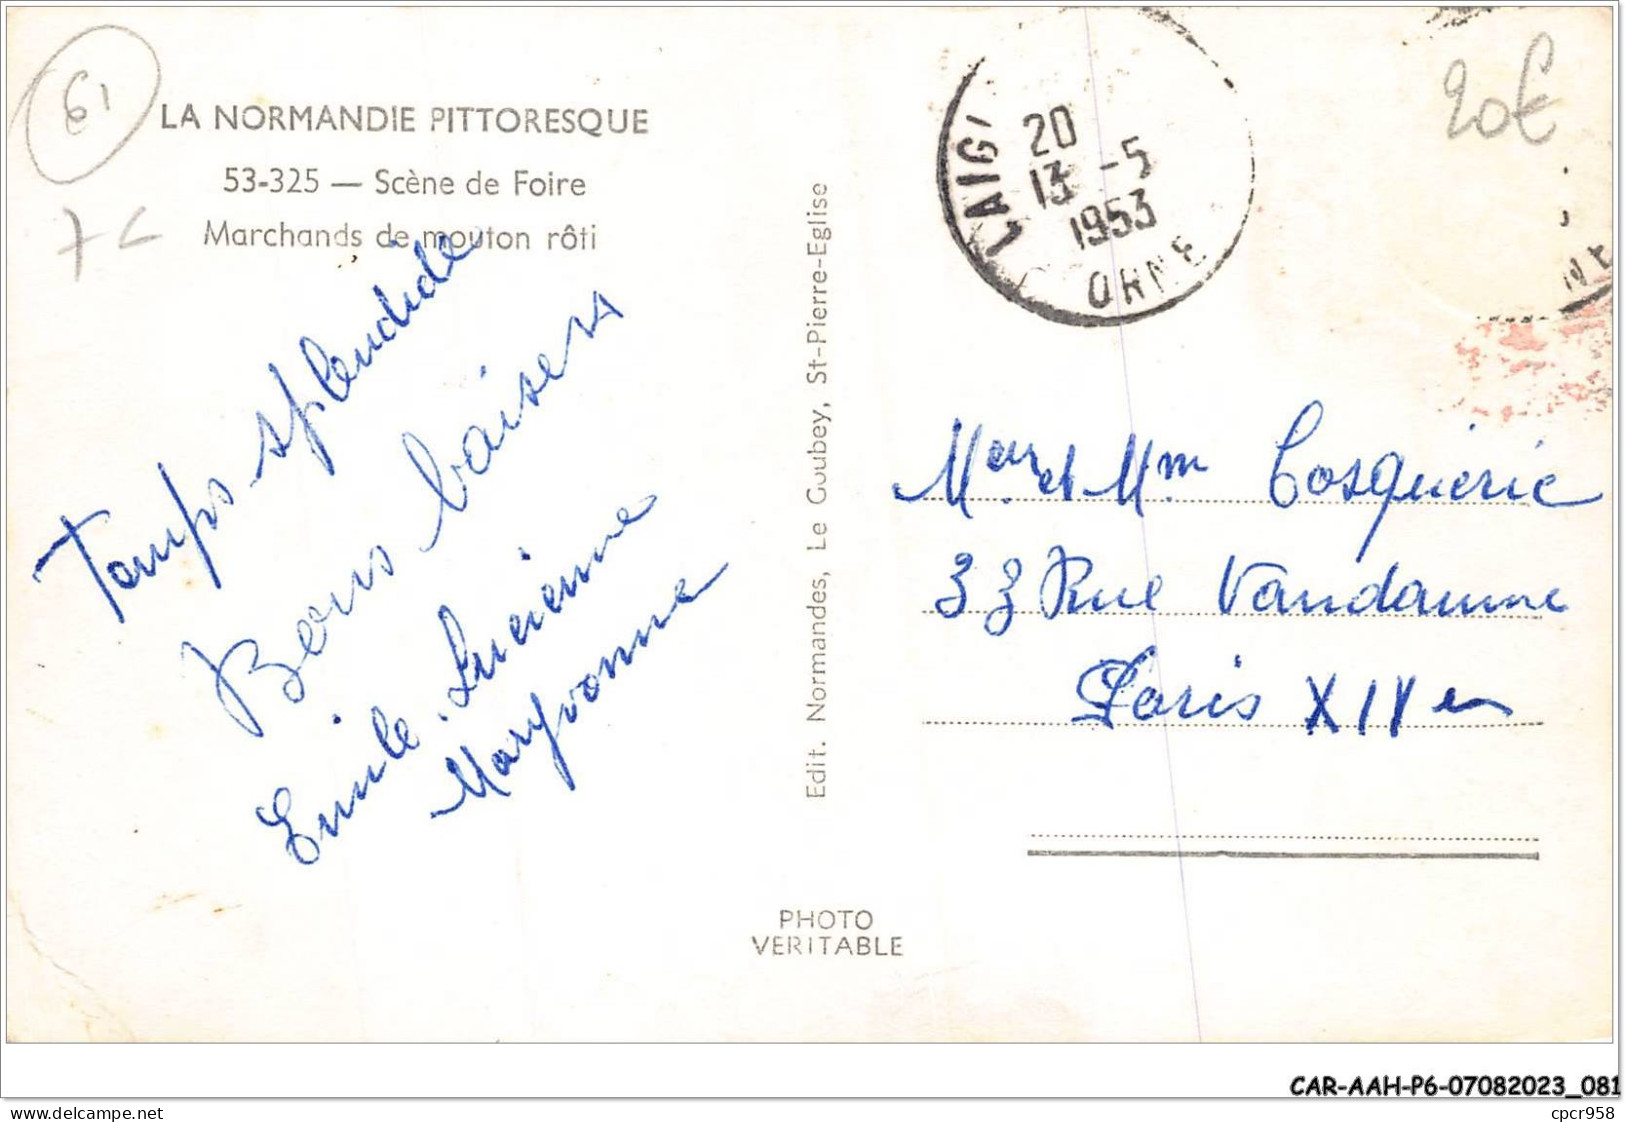 61
LA NORMANDIE PITTORESQUE
53-325 — Scène de Foire
Marchands de mouton rôti
Temps splendide
Bons baisers
Emile. Lucienne
Maryvonne
Edit. Normandes, Le Goubey, St-Pierre-Eglise
PHOTO
VERITABLE
LAIG
20
13 -5
1953
ORNE
20€
NE
Mr et Mme Cosquéric
33 Rue Vandamme
Paris XIV em
CAR-AAH-P6-07082023_081
delcampe.net
cpcr958